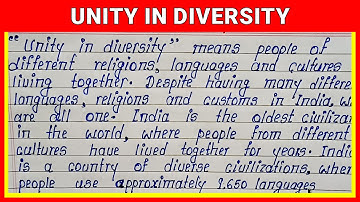 UNITY IN DIVERSITY
"Unity in diversity" means people of
different religions, languages and cultures
living together. Despite having many differe
languages, religions and customs in India, w
are all one. India is the oldest civiliza
in the world, where people from different
cultures have lived together for years. Indi
is a country of diverse civilizations, wher
people use approximately 1.650 languages